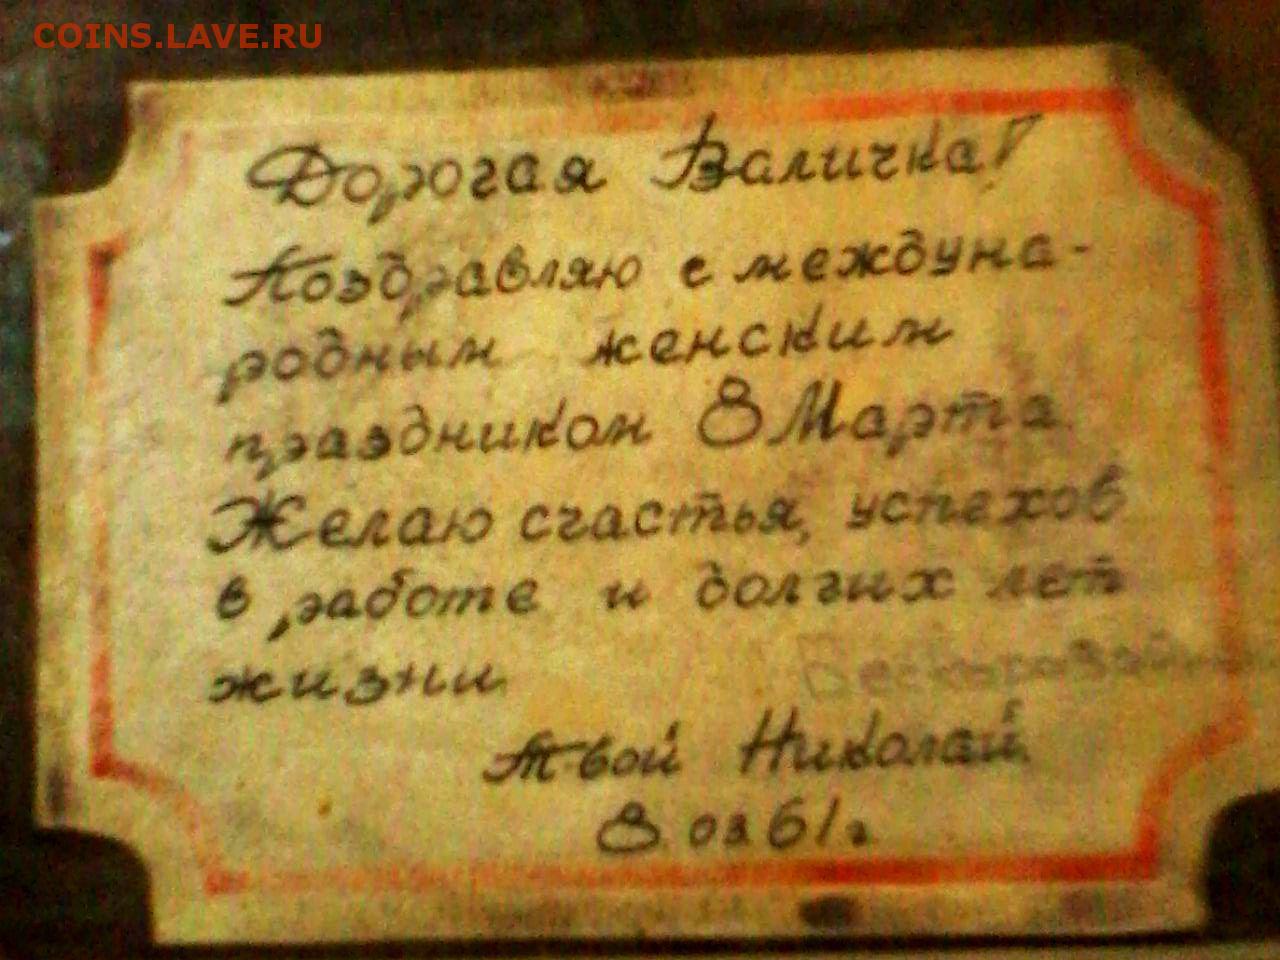 COINS.LAVE.RU
Дорогая Валичка!
Поздравляю с междуна-
родным женским
праздником 8 Марта.
Желаю счастья, успехов
в работе и долгих лет
жизни.
Твой Николай.
8 03 61 г.